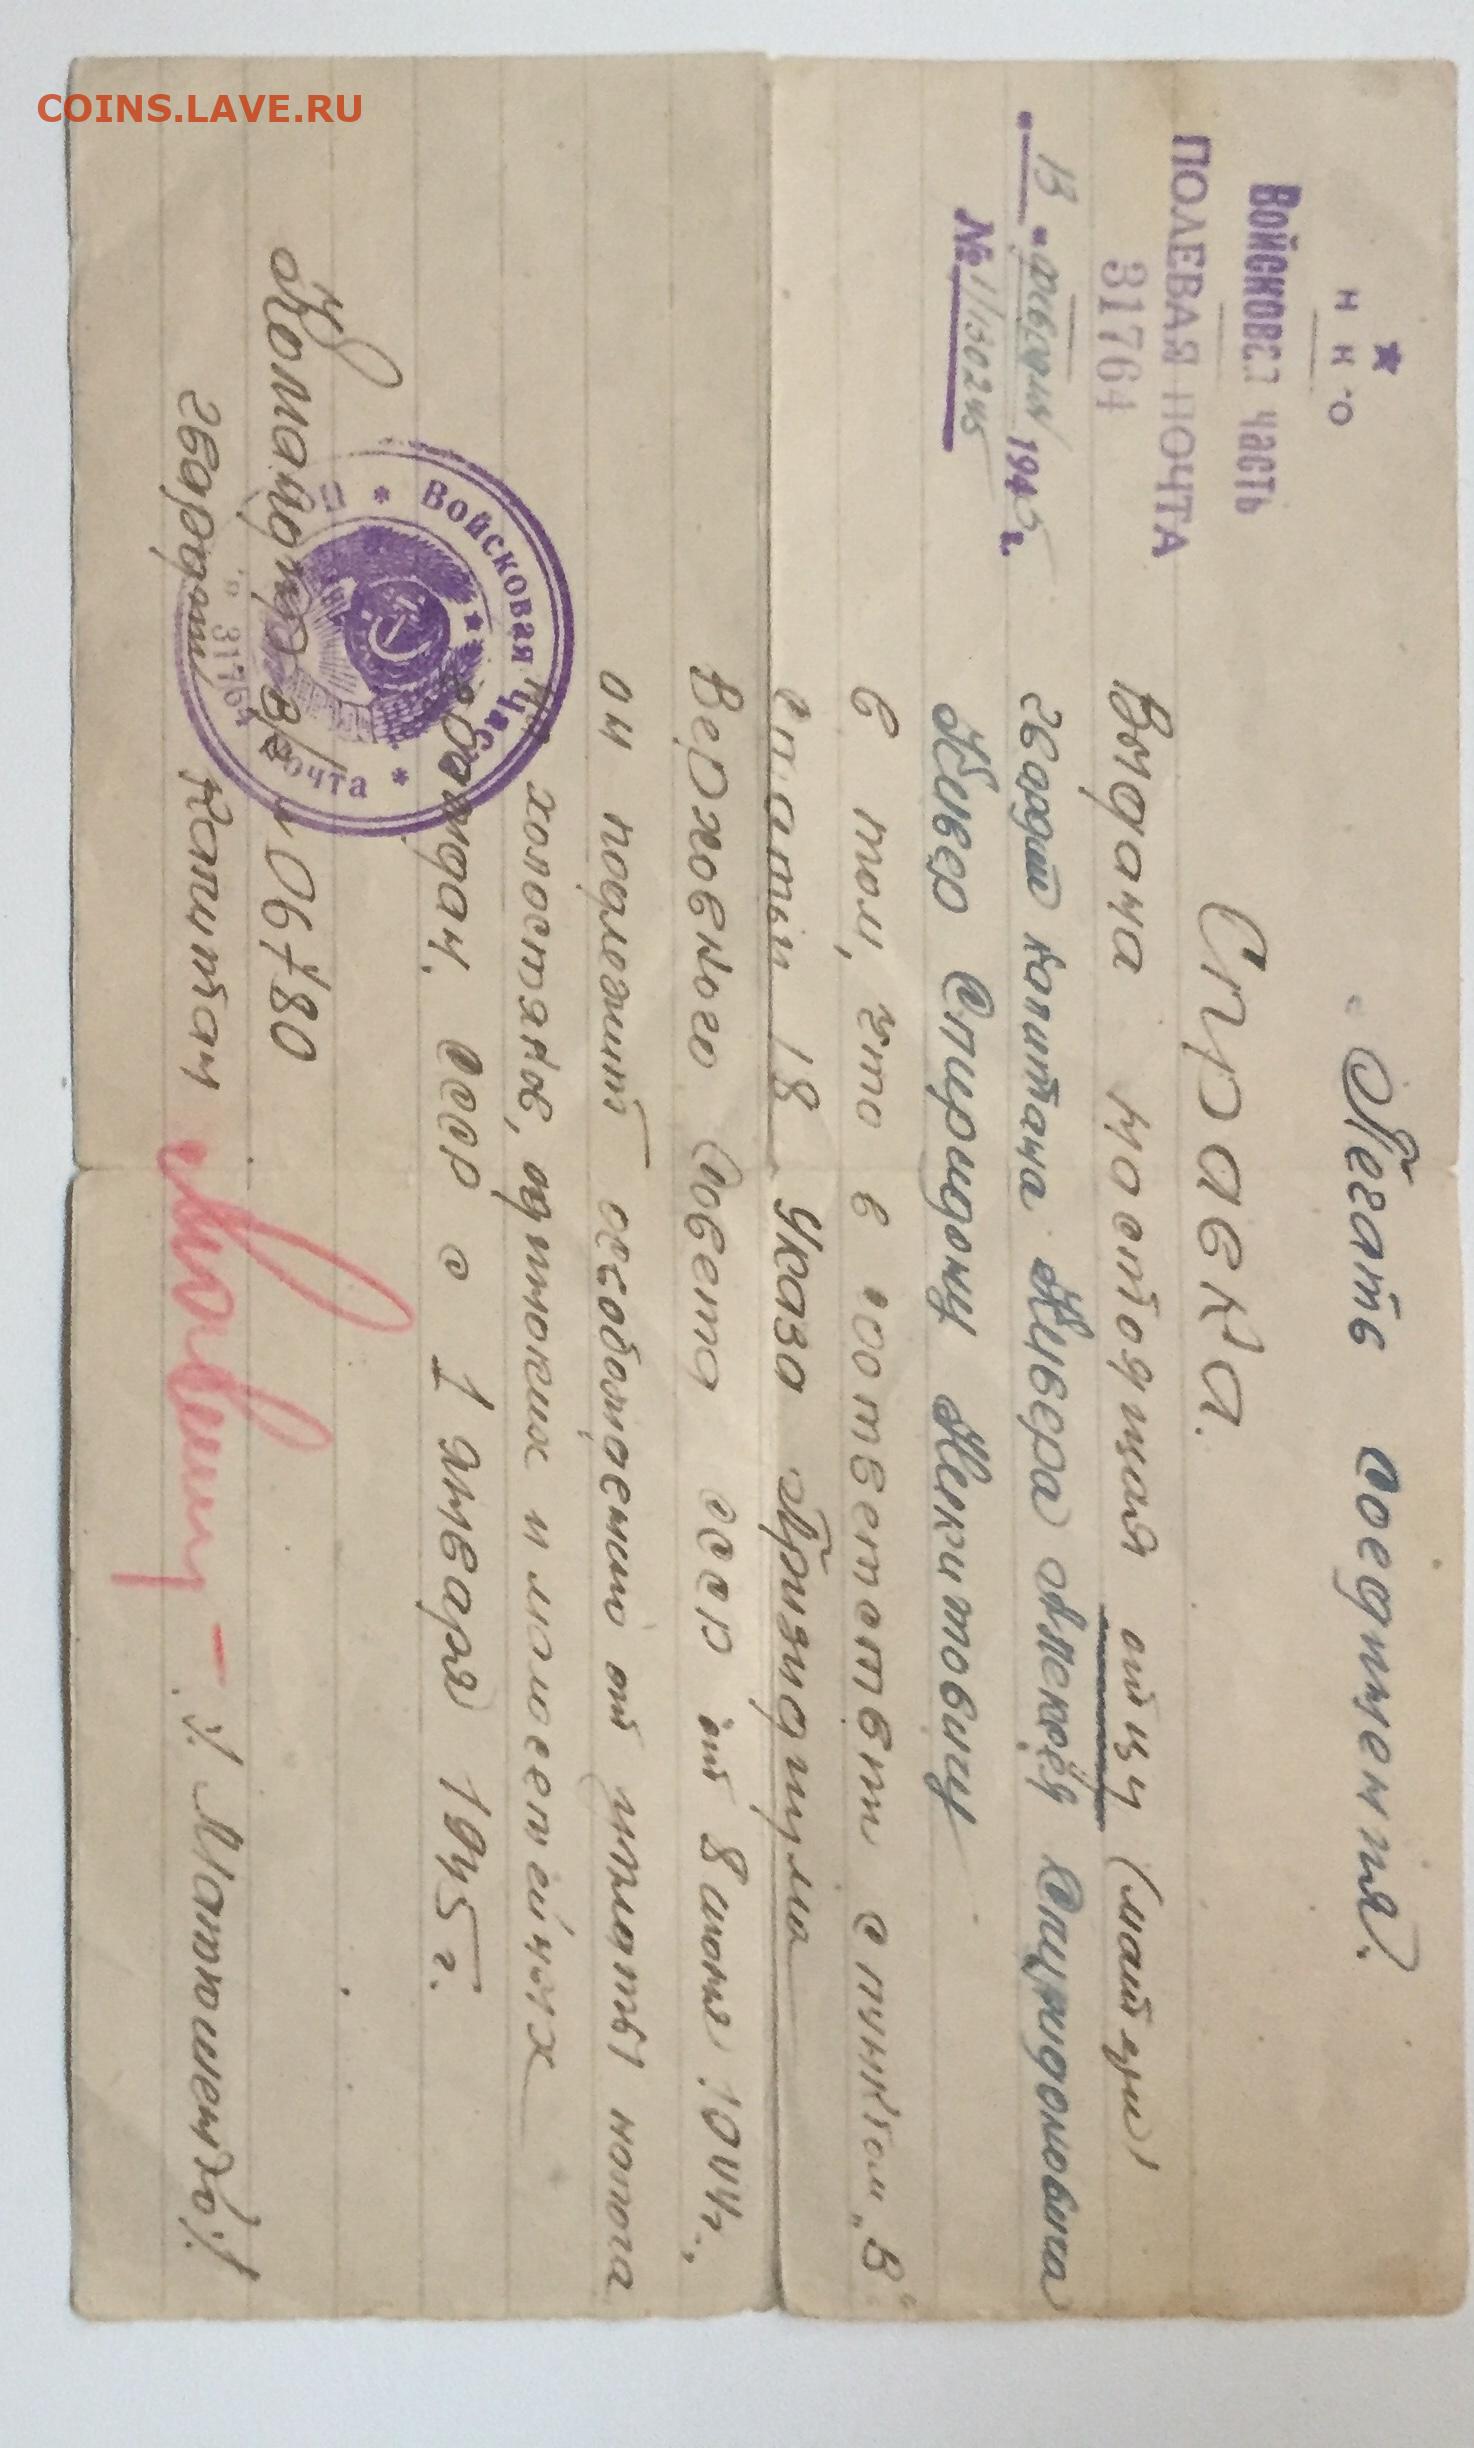 COINS.LAVE.RU
Н К О
Войсковая часть
ПОЛЕВАЯ ПОЧТА
31764
"13" февраля 1945 г.
№ 1/130245
соединения.
Справка.
Выдана настоящая отцу (матери)
гвардии капитана Живера Спиридоновича
Живер Спиридону Никитовичу
в том, что в соответствии с пунктом „В"
статьи 18 Указа Президиума
Верховного Совета СССР от 8 июля 1944г.,
он подлежит освобождению от уплаты налога
на холостяков, одиноких и малосемейных
граждан, СССР с 1 января 1945г.
Командир в/ч 06780
гвардии капитан
/Матюшенко/
Войсковая часть
почта
31764